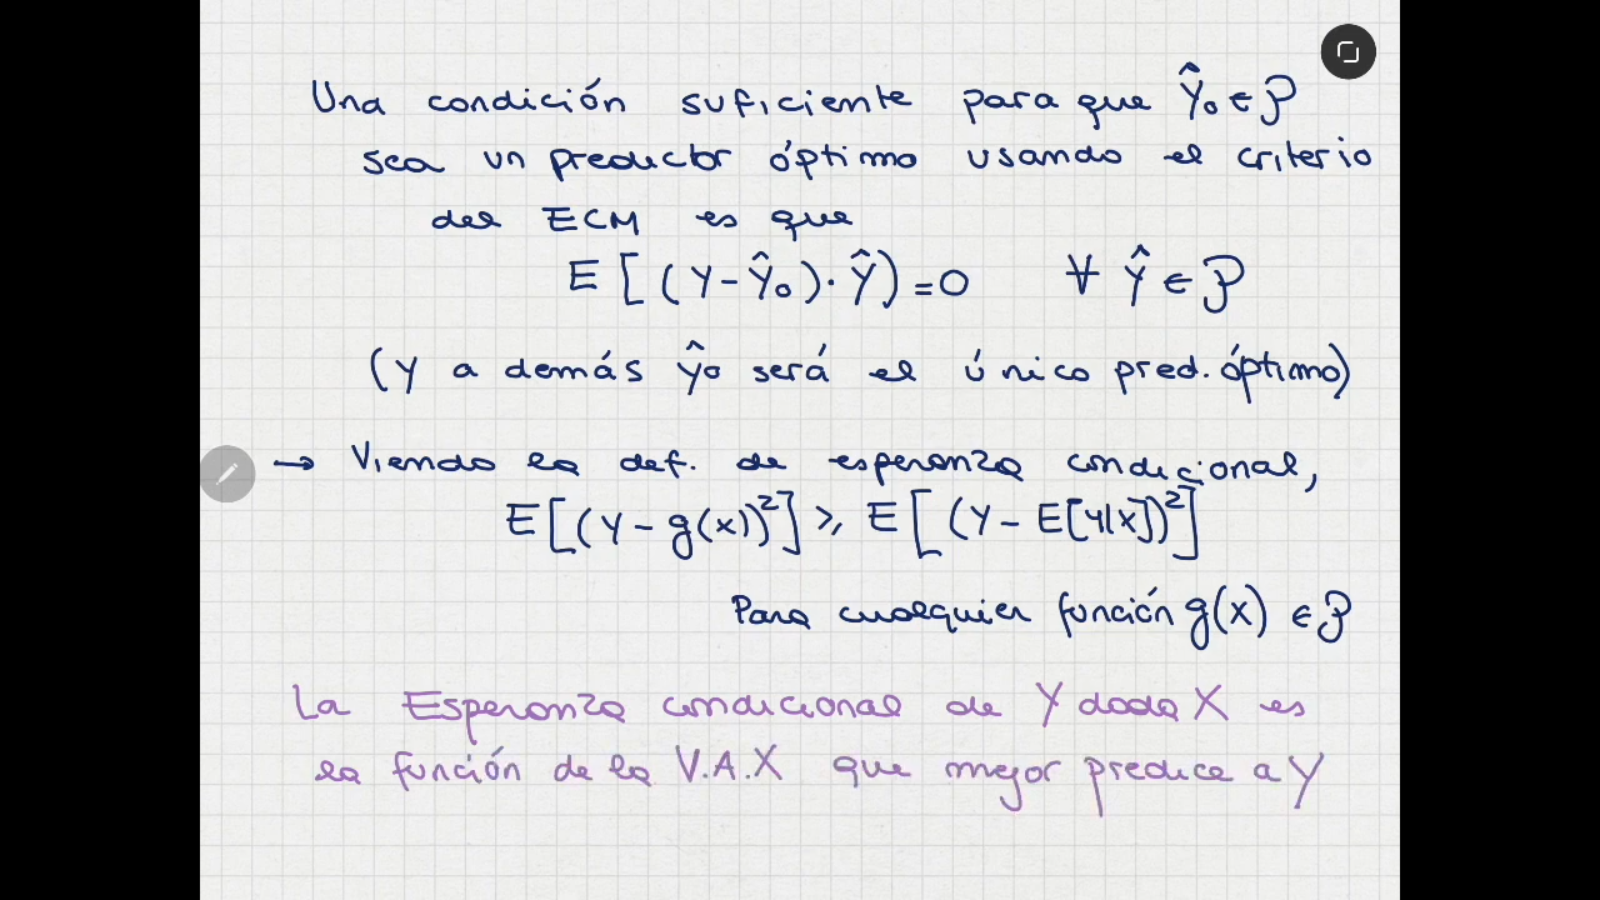 Una condición suficiente para que Ŷ₀ ∈ P
sea un predictor óptimo usando el criterio
del ECM es que
E[(Y-Ŷ₀)·Ŷ)=0 ∀ Ŷ ∈ P
(Y a demás Ŷ₀ será el único pred. óptimo)
→ Viendo la def. de esperanza condicional,
E[(Y-g(x))²] ≥ E[(Y-E[Y|X])²]
Para cualquier función g(x) ∈ P
La Esperanza condicional de Y dada X es
la función de la V.A.X que mejor predice a Y